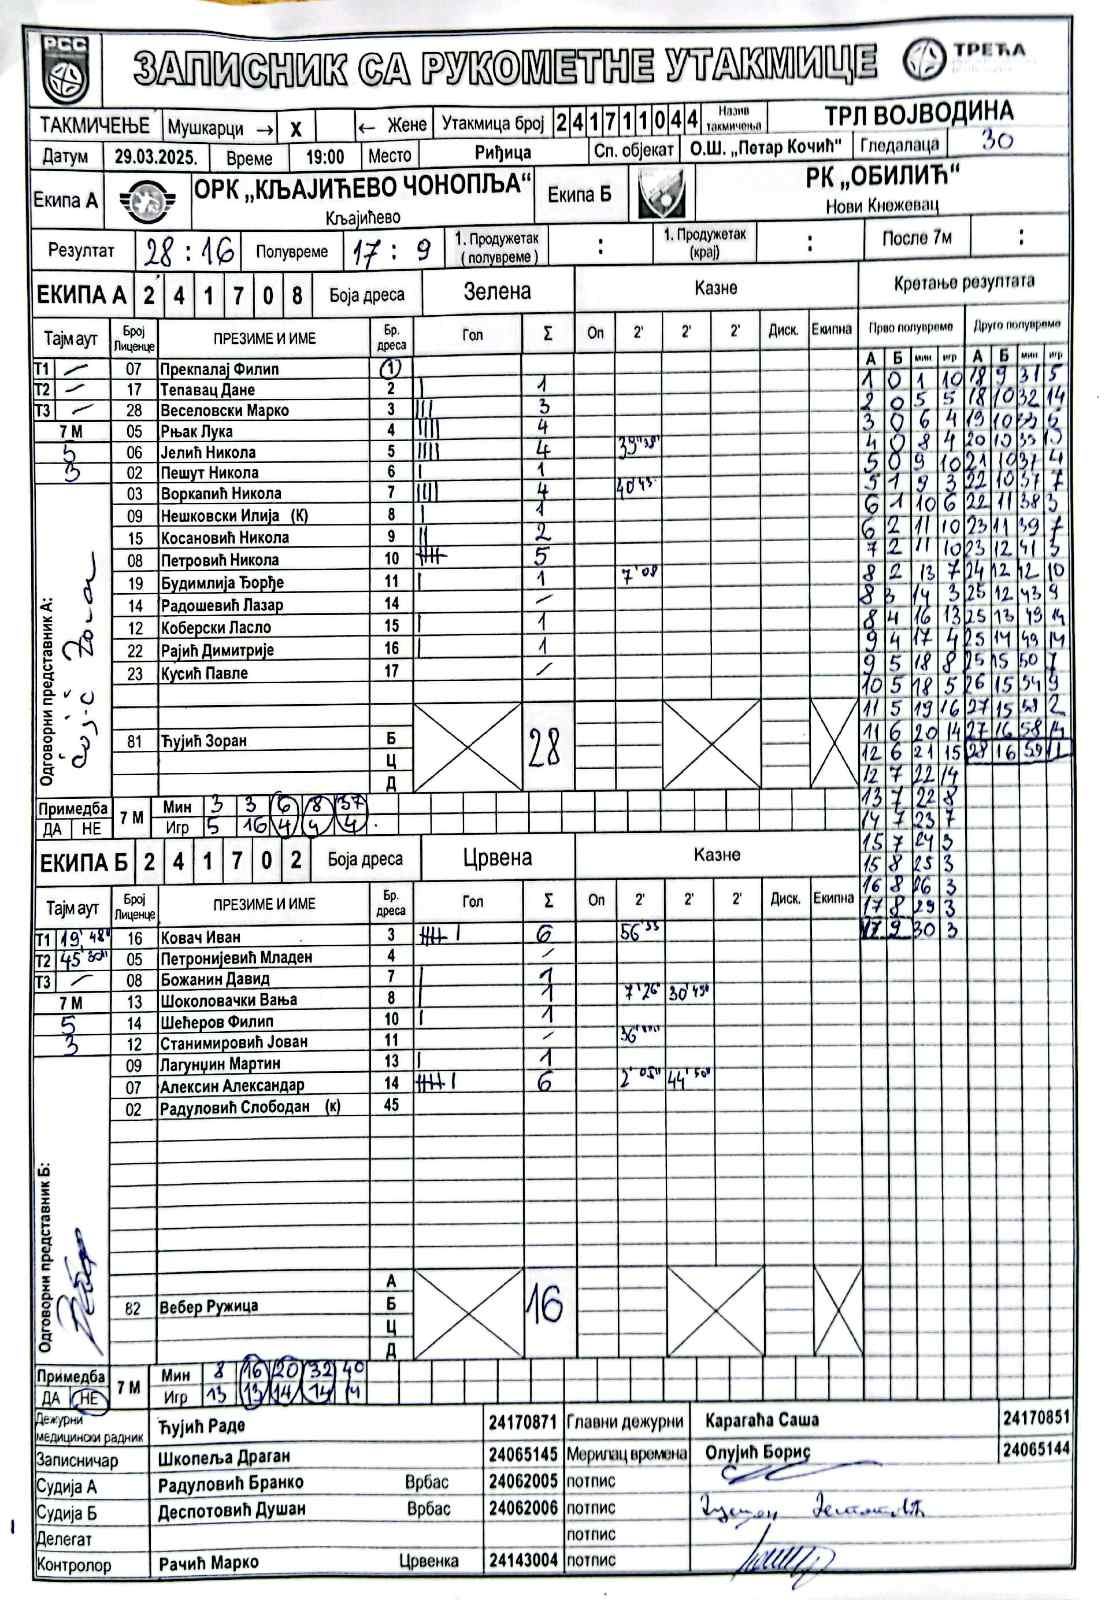 РСС
ЗАПИСНИК СА РУКОМЕТНЕ УТАКМИЦЕ
ТРЕЋА
ТАКМИЧЕЊЕ Мушкарци → X ← Жене Утакмица број 2 4 1 7 1 1 0 4 4 Назив такмичења ТРЛ ВОЈВОДИНА
Датум 29.03.2025. Време 19:00 Место Риђица Сп. објекат О.Ш. „Петар Кочић“ Гледалаца 30
Екипа А ОРК „КЉАЈИЋЕВО ЧОНОПЉА“ Кљајићево Екипа Б РК „ОБИЛИЋ“ Нови Кнежевац
Резултат 28:16 Полувреме 17:9 1. Продужетак (полувреме) : 1. Продужетак (крај) : После 7м :
ЕКИПА А 2 4 1 7 0 8 Боја дреса Зелена Казне Кретање резултата
Тајм аут Број Лиценце ПРЕЗИМЕ И ИМЕ Бр. дреса Гол Σ Оп 2' 2' 2' Диск. Екипна Прво полувреме Друго полувреме
А Б мин игр А Б мин игр
T1 / 07 Прекпалај Филип 1
T2 / 17 Тепавац Дане 2 | 1
T3 / 28 Веселовски Марко 3 ||| 3
7 М 05 Рњак Лука 4 |||| 4
5 06 Јелић Никола 5 |||| 4 39'38"
3 02 Пешут Никола 6 | 1
03 Воркапић Никола 7 |||| 4 40'43"
09 Нешковски Илија (К) 8 | 1
15 Косановић Никола 9 || 2
08 Петровић Никола 10 5
19 Будимлија Ђорђе 11 | 1 7'08
14 Радошевић Лазар 14 /
12 Коберски Ласло 15 | 1
22 Рајић Димитрије 16 | 1
23 Кусић Павле 17 /
81 Ћујић Зоран Б 28
Ц
Д
Одговорни представник А:
1 0 1 10 18 9 31 5
2 0 5 5 18 10 32 14
3 0 6 4 19 10 33 5
4 0 8 4 20 10 33
5 0 9 10 21 10 37 4
5 1 9 3 22 10 37 7
6 1 10 6 22 11 38 3
6 2 11 10 23 11 39 7
7 2 11 10 23 12 41 3
8 2 13 7 24 12 12 10
8 3 14 3 25 12 43 9
8 4 16 13 25 13 49 14
9 4 17 4 25 14 49 14
9 5 18 8 25 15 50 7
10 5 18 5 26 15 54 9
11 5 19 16 27 15 58 2
11 6 20 14 27 16 58 14
12 6 21 15 28 16 59 11
12 7 22 14
13 7 22 8
14 7 23 7
15 7 24 3
15 8 25 3
16 8 26 3
17 8 29 3
17 9 30 3
Примедба ДА НЕ 7 М
Мин 3 3 6 8 37
Игр 5 16 4 4 4
ЕКИПА Б 2 4 1 7 0 2 Боја дреса Црвена Казне
Тајм аут Број Лиценце ПРЕЗИМЕ И ИМЕ Бр. дреса Гол Σ Оп 2' 2' 2' Диск. Екипна
T1 19'48" 16 Ковач Иван 3 6 56'33
T2 45'30" 05 Петронијевић Младен 4 /
T3 / 08 Божанин Давид 7 | 1
7 М 13 Шоколовачки Вања 8 | 1 7'26" 30'49"
5 14 Шећеров Филип 10 | 1
3 12 Станимировић Јован 11 /
09 Лагунџин Мартин 13 | 1
07 Алексин Александар 14 6 2'05" 44'50"
02 Радуловић Слободан (к) 45
А
82 Вебер Ружица Б 16
Ц
Д
Одговорни представник Б:
Примедба ДА НЕ 7 М
Мин 8 16 20 32 40
Игр 13 13 14 14 14
Дежурни медицински радник Ћујић Раде 24170871 Главни дежурни Карагаћа Саша 24170851
Записничар Шкопеља Драган 24065145 Мерилац времена Олујић Борис 24065144
Судија А Радуловић Бранко Врбас 24062005 потпис
Судија Б Деспотовић Душан Врбас 24062006 потпис
Делегат потпис
Контролор Рачић Марко Црвенка 24143004 потпис